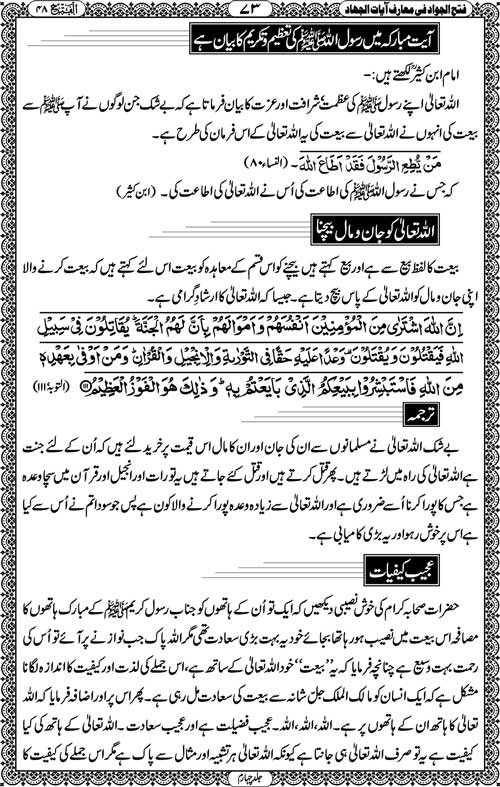 فتح الجواد فی معارف آیات الجہاد ۷۳ الفتح ۴۸
آیت مبارکہ میں رسول اللہ ﷺ کی تعظیم و تکریم کا بیان ہے
امام ابن کثیرؒ لکھتے ہیں:۔
اللہ تعالیٰ اپنے رسول ﷺ کی عظمت شرافت اور عزت کا بیان فرماتا ہے کہ بے شک جن لوگوں نے آپ ﷺ سے
بیعت کی انہوں نے اللہ تعالیٰ سے بیعت کی یہ اللہ تعالیٰ کے اس فرمان کی طرح ہے۔
مَنْ يُّطِعِ الرَّسُوْلَ فَقَدْ اَطَاعَ اللّٰهَ۔ (النساء ۸۰)
کہ جس نے رسول اللہ ﷺ کی اطاعت کی اُس نے اللہ تعالیٰ کی اطاعت کی۔ (ابن کثیر)
اللہ تعالیٰ کو جان و مال بیچنا
بیعت کا لفظ بیع سے ہے اور بیع کہتے ہیں بیچنے کو اس قسم کے معاہدہ کو بیعت اس لئے کہتے ہیں کہ بیعت کرنے والا
اپنی جان و مال کو اللہ تعالیٰ کے پاس بیچ دیتا ہے۔ جیسا کہ اللہ تعالیٰ کا ارشاد گرامی ہے۔
اِنَّ اللّٰهَ اشْتَرٰى مِنَ الْمُؤْمِنِيْنَ اَنْفُسَهُمْ وَاَمْوَالَهُمْ بِاَنَّ لَهُمُ الْجَنَّةَ ؕ يُقَاتِلُوْنَ فِيْ سَبِيْلِ
اللّٰهِ فَيَقْتُلُوْنَ وَيُقْتَلُوْنَ وَعْدًا عَلَيْهِ حَقًّا فِي التَّوْرٰىةِ وَالْاِنْجِيْلِ وَالْقُرْاٰنِ ؕ وَمَنْ اَوْفٰى بِعَهْدِهٖ
مِنَ اللّٰهِ فَاسْتَبْشِرُوْا بِبَيْعِكُمُ الَّذِيْ بَايَعْتُمْ بِهٖ ؕ وَذٰلِكَ هُوَ الْفَوْزُ الْعَظِيْمُ ﴿۱۱۱﴾ (التوبۃ ۱۱۱)
ترجمہ
بے شک اللہ تعالیٰ نے مسلمانوں سے ان کی جان اور ان کا مال اس قیمت پر خرید لئے ہیں کہ اُن کے لئے جنت
ہے اللہ تعالیٰ کی راہ میں لڑتے ہیں۔ پھر قتل کرتے ہیں اور قتل کئے جاتے ہیں یہ تورات اور انجیل اور قرآن میں سچا وعدہ
ہے جس کا پورا کرنا اُسے ضروری ہے اور اللہ تعالیٰ سے زیادہ وعدہ پورا کرنے والا کون ہے پس جو سودا تم نے اُس سے کیا
ہے اس پر خوش رہو اور یہ بڑی کامیابی ہے۔
عجیب کیفیات
حضرات صحابہ کرام کی خوش نصیبی دیکھیں کہ ایک تو اُن کے ہاتھوں کو جناب رسول کریم ﷺ کے مبارک ہاتھوں کا
مصافحہ اس بیعت میں نصیب ہو رہا تھا بجائے خود یہ بہت بڑی سعادت تھی مگر اللہ پاک جب نوازنے پر آئے تو اُس کی
رحمت بہت وسیع ہے چنانچہ فرمایا کہ یہ ”بیعت“ خود اللہ تعالیٰ کے ساتھ ہے، اس جملے کی لذت اور کیفیت کا اندازہ لگانا
مشکل ہے کہ ایک انسان کو مالک الملک جل شانہ سے بیعت کی سعادت مل رہی ہے۔ پھر اس پر اور اضافہ فرمایا کہ اللہ
تعالیٰ کا ہاتھ ان کے ہاتھوں پر ہے۔ اللہ، اللہ، اللہ۔ عجیب فضیلت ہے اور عجیب سعادت۔ اللہ تعالیٰ کے ہاتھ کی کیا
کیفیت ہے یہ تو صرف اللہ تعالیٰ ہی جانتا ہے کیونکہ اللہ تعالیٰ ہر تشبیہ اور مثال سے پاک ہے مگر اس جملے کی کیفیت کا
جلد چہارم